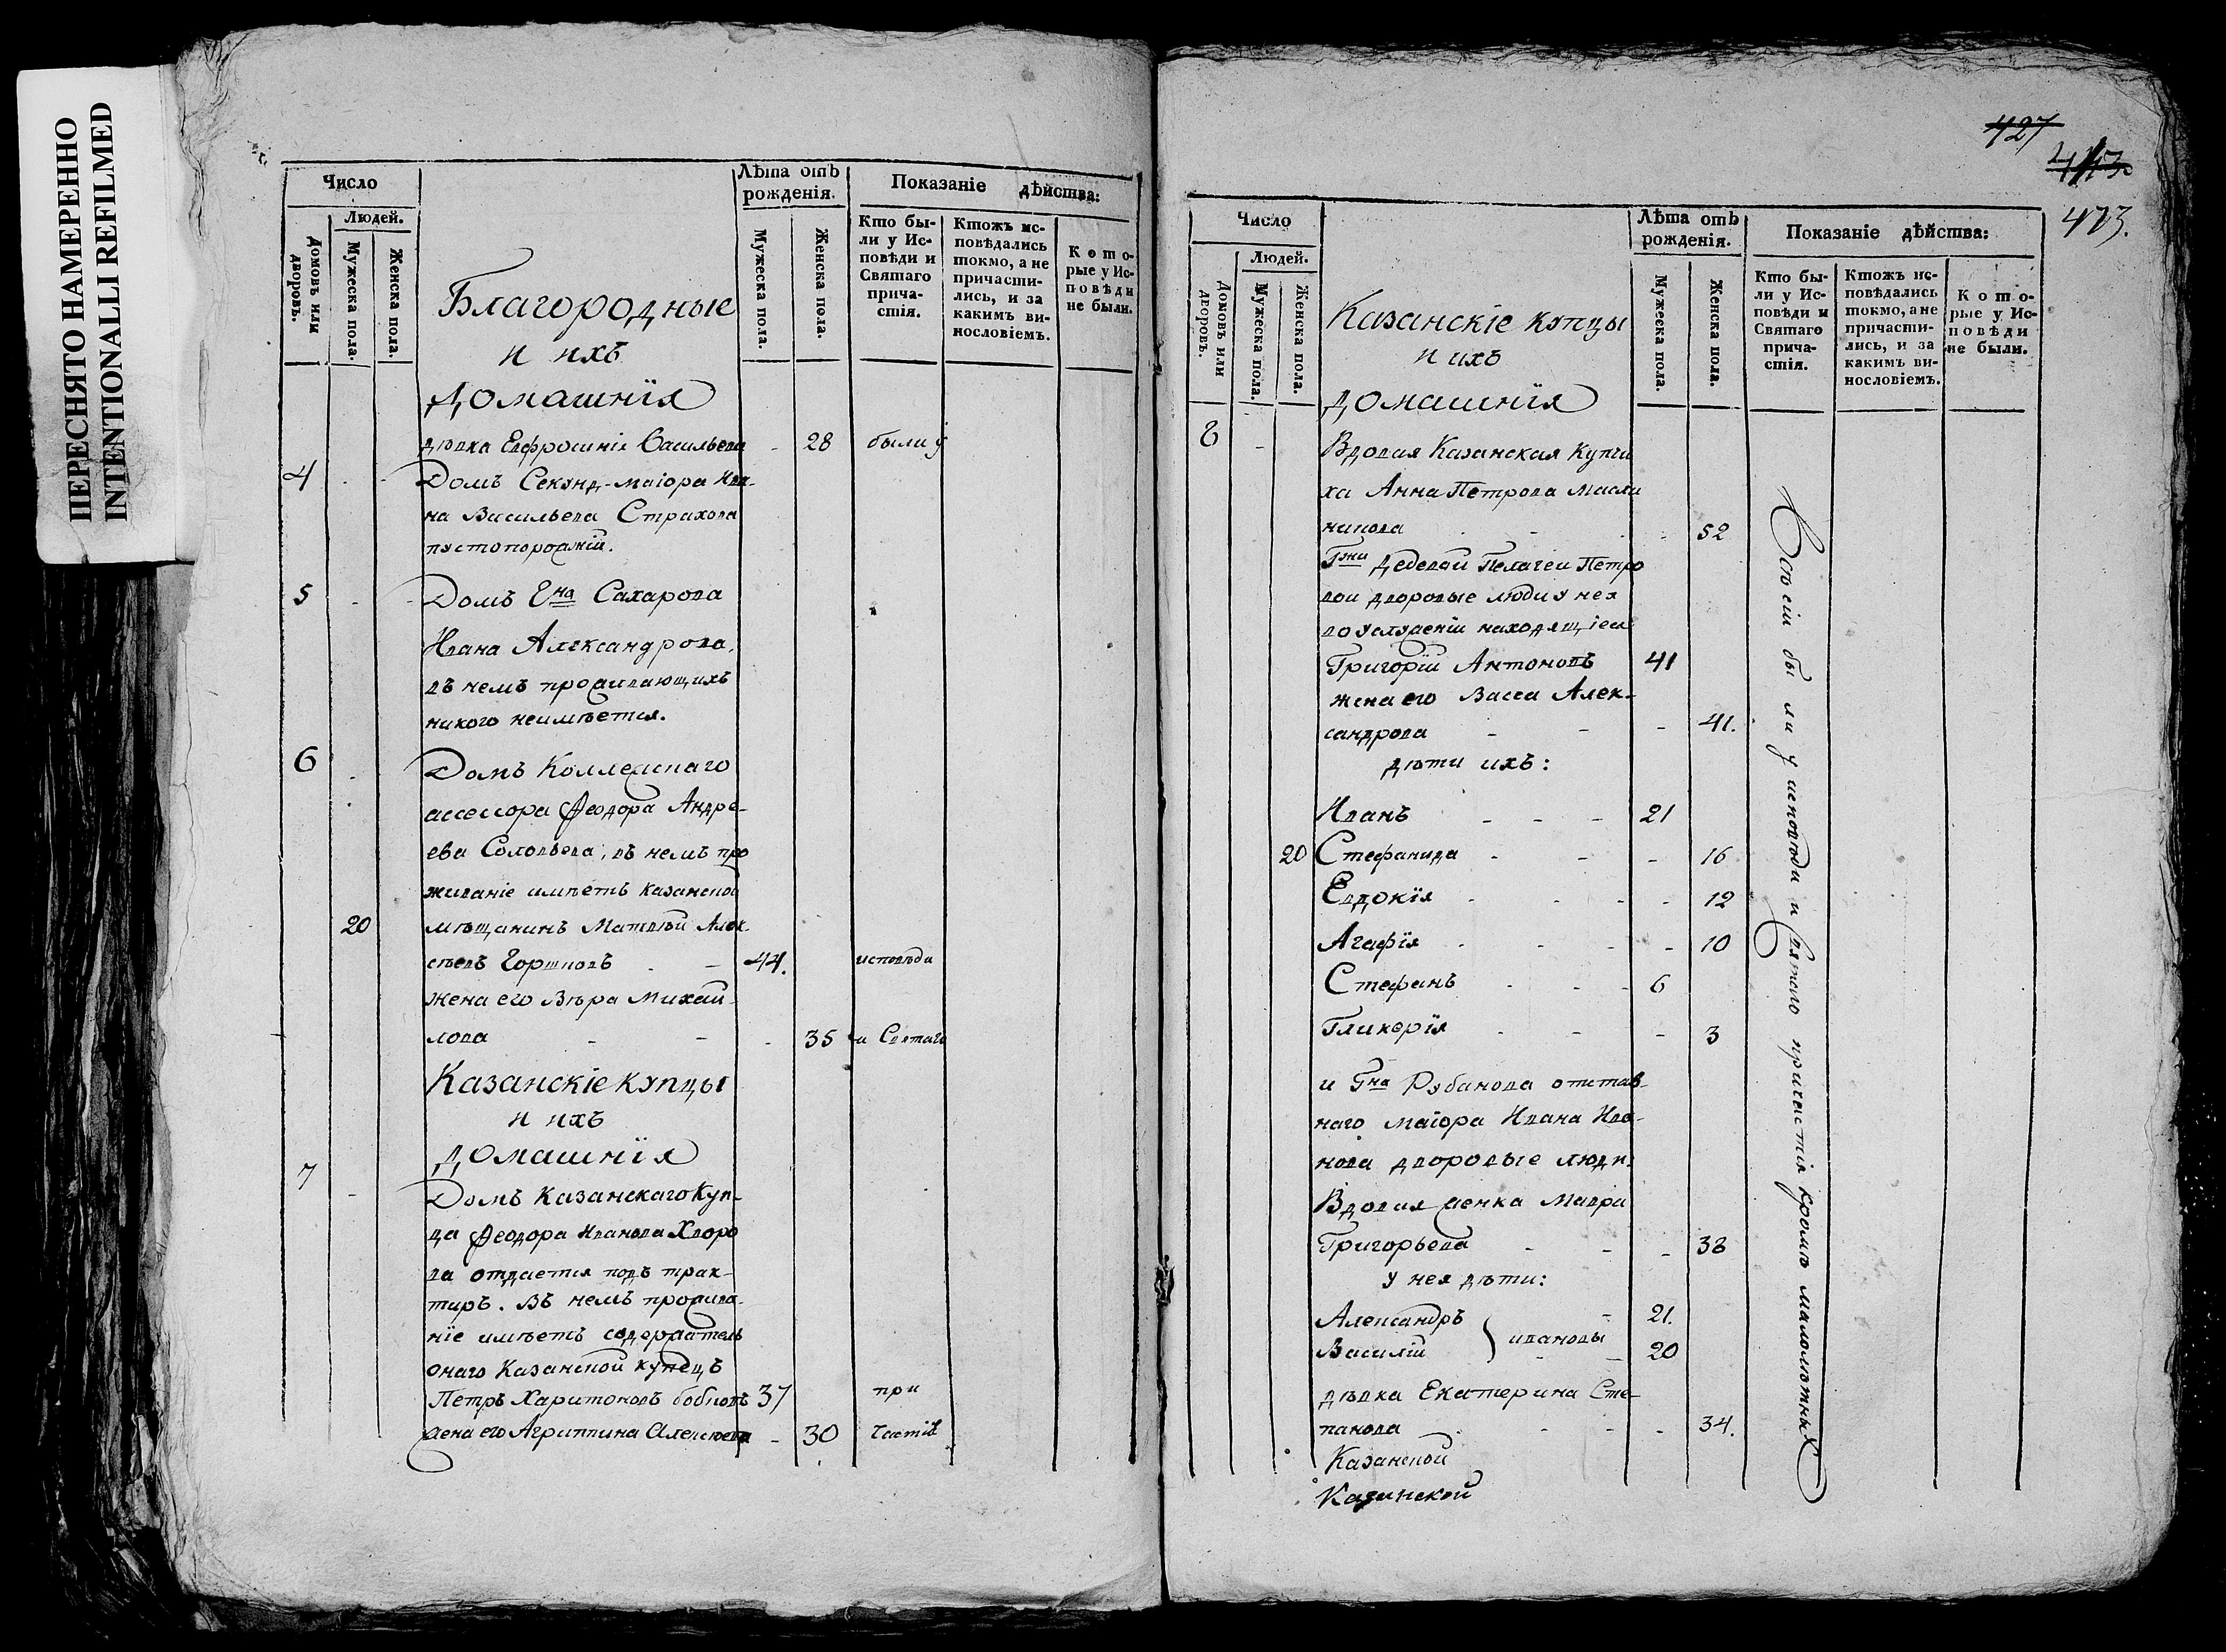 ПЕРЕСНЯТО НАМЕРЕННО
INTENTIONALLI REFILMED
Число
Людей.
Домовъ или дворовъ.
Мужеска пола.
Женска пола.
Лѣта отъ рожденія.
Мужеска пола.
Женска пола.
Показаніе дѣйства:
Кто бы-
ли у Ис-
повѣди и
Святаго
прича-
стія.
Ктожъ ис-
повѣдались
токмо, а не
причасти-
лись, и за
какимъ ви-
нословіемъ.
Кото-
рые у Ис-
повѣди
не были.
Благородные
и ихъ
домашнія
дѣвка Евфросинія Васильева - 28 были у
4 Домъ Секунд-маіора Ива-
на Васильева Страхова
пустопорожній.
5 Домъ Г-на Сахарова
Ивана Александрова,
въ немъ проживающихъ
никого неимѣется.
6 Домъ Коллежскаго
ассессора Феодора Андре-
ева Соловьева, въ немъ про
живаніе имѣетъ казанской
20 мѣщанинъ Матвѣй Алек-
сѣевъ Горшковъ - 44. исповѣди
жена его Вѣра Михай-
лова - - - 35 и Святаго
Казанскіе купцы
и ихъ
домашнія
7 Домъ Казанскаго Куп-
ца Феодора Иванова Хворо
ва отдается подъ трак-
тиръ. Въ немъ прожива-
ніе имѣетъ содержатель
онаго Казанской купецъ
Петръ Харитоновъ Бобковъ 37 при
жена его Агриппина Алексѣева - 30 частія
427
473.
Число
Людей.
Домовъ или дворовъ.
Мужеска пола.
Женска пола.
Лѣта отъ рожденія.
Мужеска пола.
Женска пола.
Показаніе дѣйства:
Кто бы-
ли у Ис-
повѣди и
Святаго
прича-
стія.
Ктожъ ис-
повѣдались
токмо, а не
причасти-
лись, и за
какимъ ви-
нословіемъ.
Кото-
рые у Ис-
повѣди
не были.
Казанскіе купцы
и ихъ
домашнія
8 - Вдовая Казанская Купчи
ха Анна Петрова Масле
никова - 52
Г-жи Дедевой Пелагеи Петро
вой дворовые люди у нея
во услуженіи находящіеся
Григорій Антоновъ 41
жена его Васса Алек-
сандрова - - - 41.
дѣти ихъ:
Иванъ - - - 21
20 Стефанида - - - 16
Евдокія - - - - 12
Агафія - - - - 10
Стефанъ - - - 6
Гликерія - - - 3
и Г-на Рубанова отстав-
наго маіора Ивана Ива-
нова дворовые люди:
Вдовая женка Мавра
Григорьева - - - 38
у нея дѣти:
Александръ - 21.
Василій } Ивановы - - 20
дѣвка Екатерина Сте-
панова - - - 34.
Казанской
Казанской
Всѣ сіи были у исповѣди и святаго причастія кромѣ малолѣтныхъ